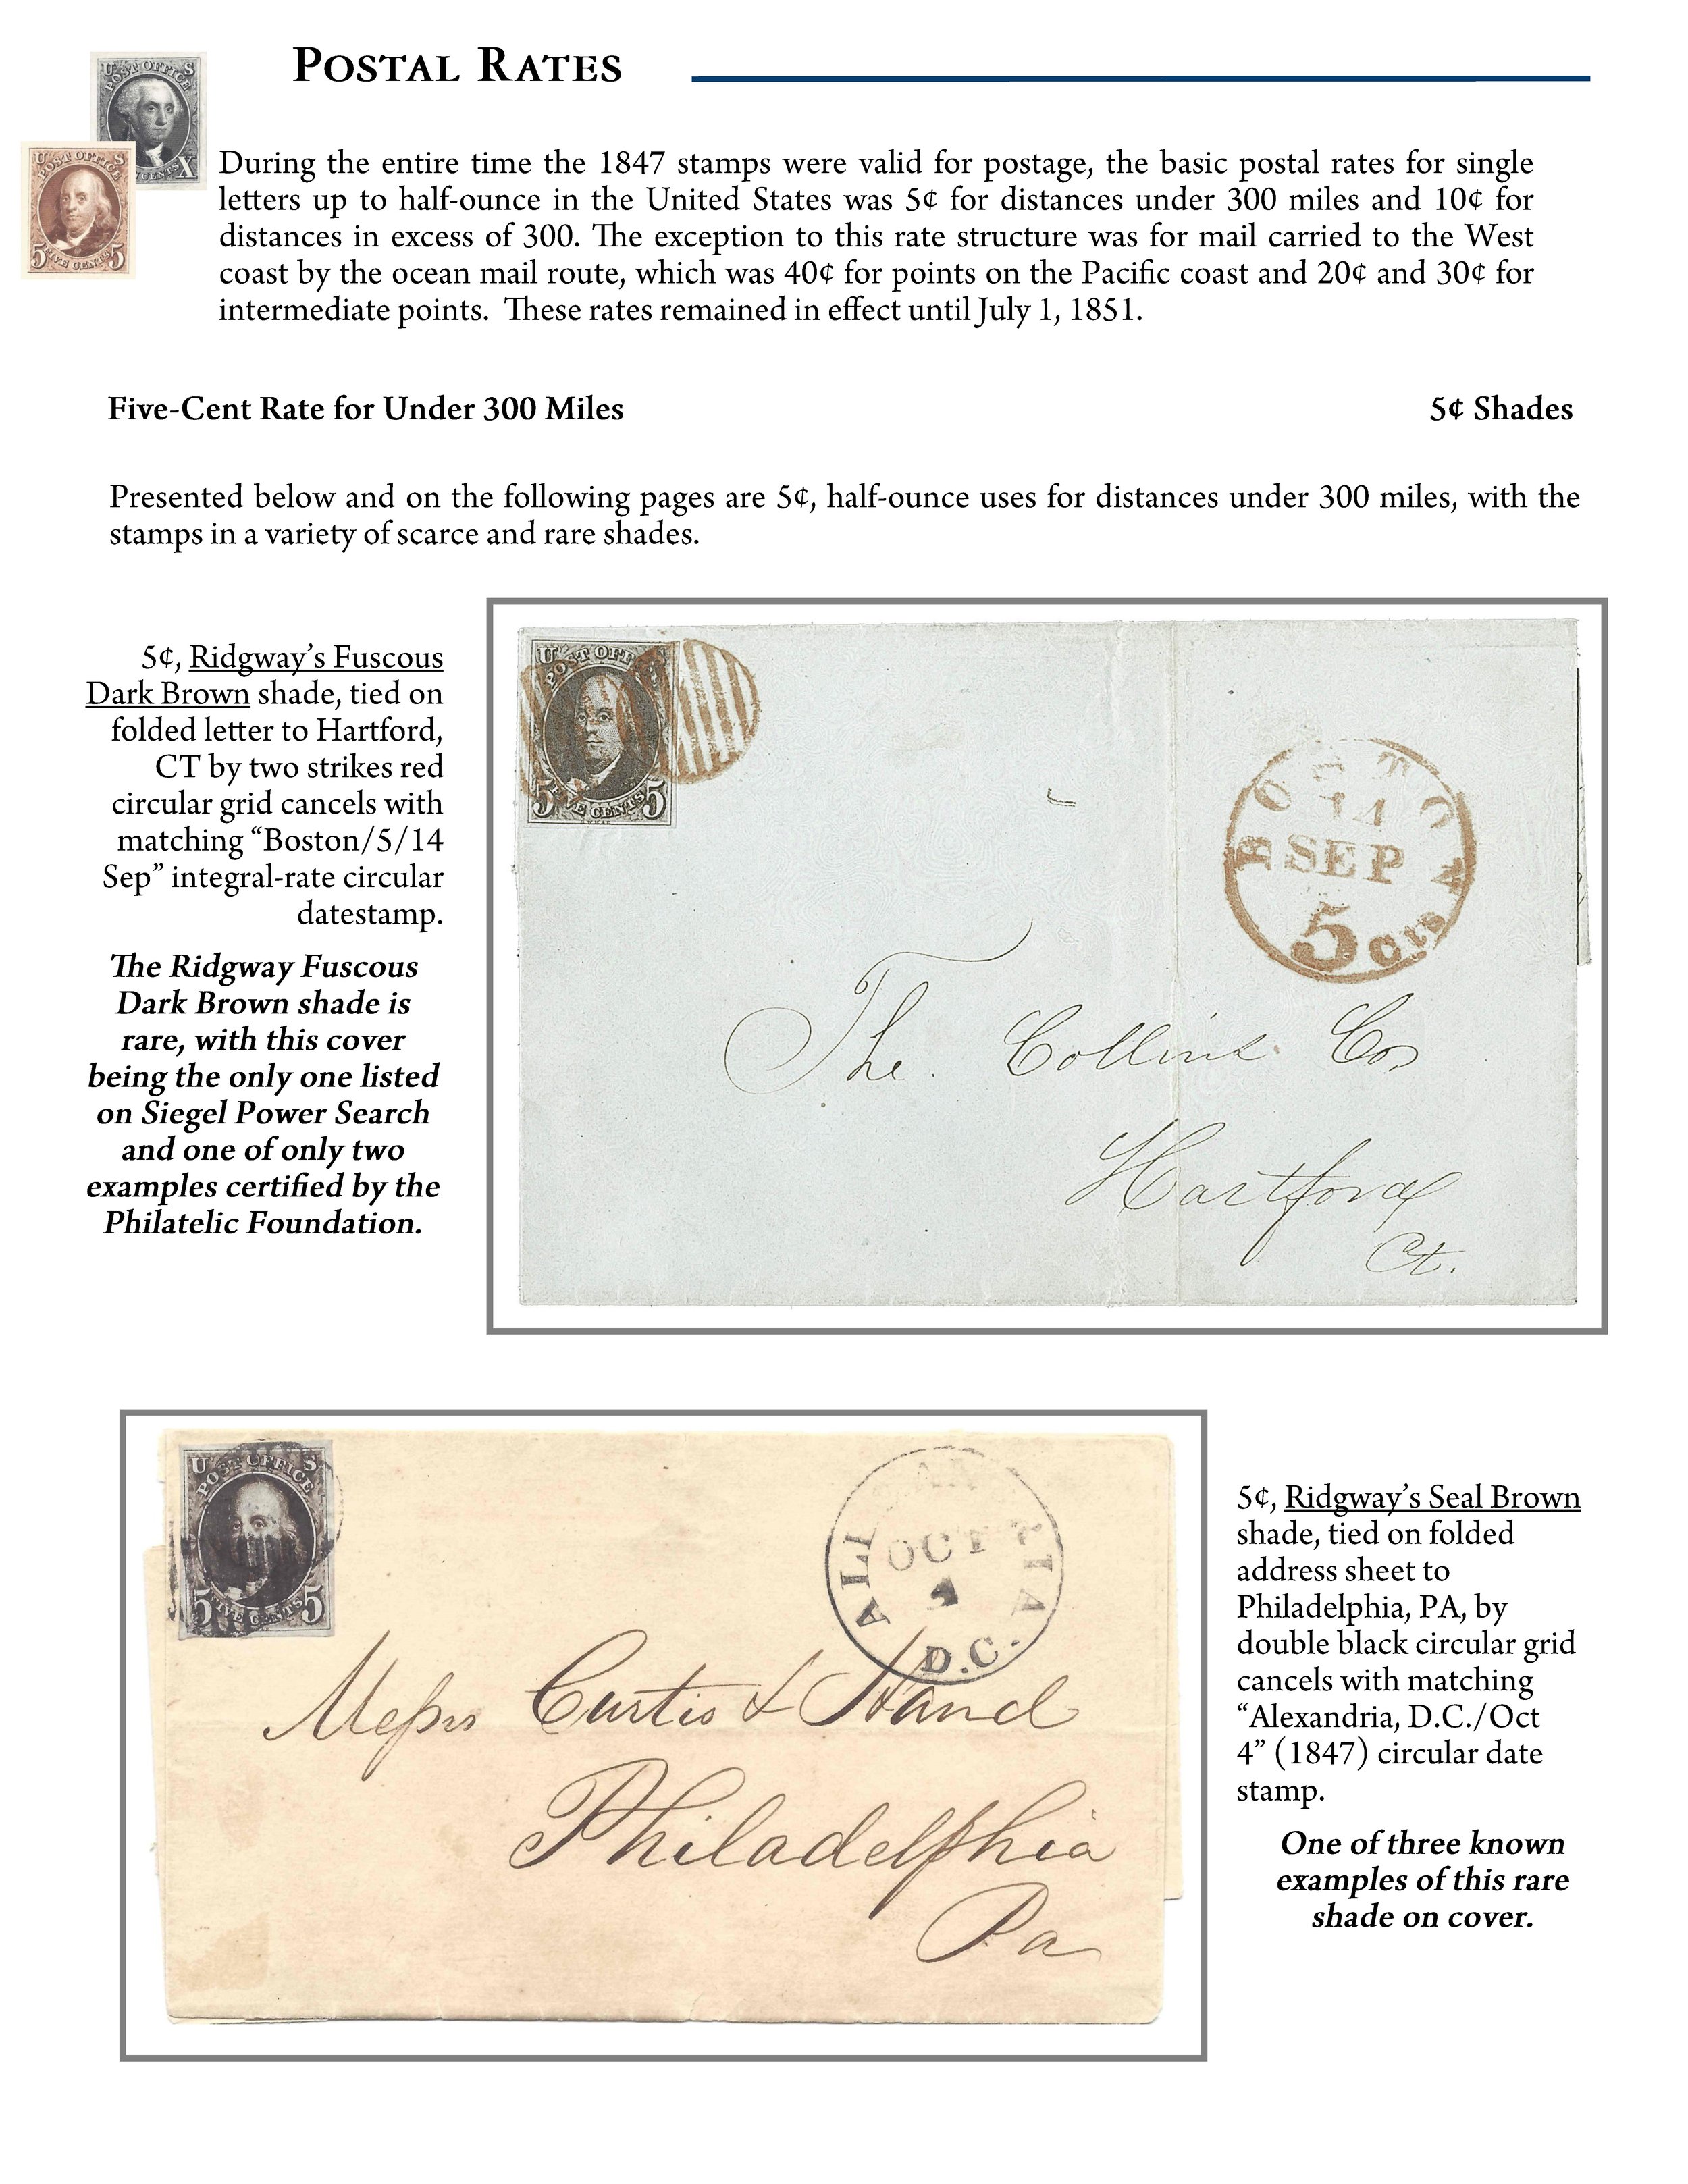 POSTAL RATES
U POST OFFICE S
CENTS X
U POST OFFICE S
5 FIVE CENTS 5
During the entire time the 1847 stamps were valid for postage, the basic postal rates for single
letters up to half-ounce in the United States was 5¢ for distances under 300 miles and 10¢ for
distances in excess of 300. The exception to this rate structure was for mail carried to the West
coast by the ocean mail route, which was 40¢ for points on the Pacific coast and 20¢ and 30¢ for
intermediate points. These rates remained in effect until July 1, 1851.
Five-Cent Rate for Under 300 Miles
5¢ Shades
Presented below and on the following pages are 5¢, half-ounce uses for distances under 300 miles, with the
stamps in a variety of scarce and rare shades.
5¢, Ridgway's Fuscous
Dark Brown shade, tied on
folded letter to Hartford,
CT by two strikes red
circular grid cancels with
matching “Boston/5/14
Sep” integral-rate circular
datestamp.
The Ridgway Fuscous
Dark Brown shade is
rare, with this cover
being the only one listed
on Siegel Power Search
and one of only two
examples certified by the
Philatelic Foundation.
5 FIVE CENTS 5
14
SEP
5 cts
The Collins Co
Hartford
Ct.
U POST OFFICE S
5 FIVE CENTS 5
OCT
4
D.C.
Messrs Curtis & Hand
Philadelphia
Pa
5¢, Ridgway's Seal Brown
shade, tied on folded
address sheet to
Philadelphia, PA, by
double black circular grid
cancels with matching
“Alexandria, D.C./Oct
4” (1847) circular date
stamp.
One of three known
examples of this rare
shade on cover.